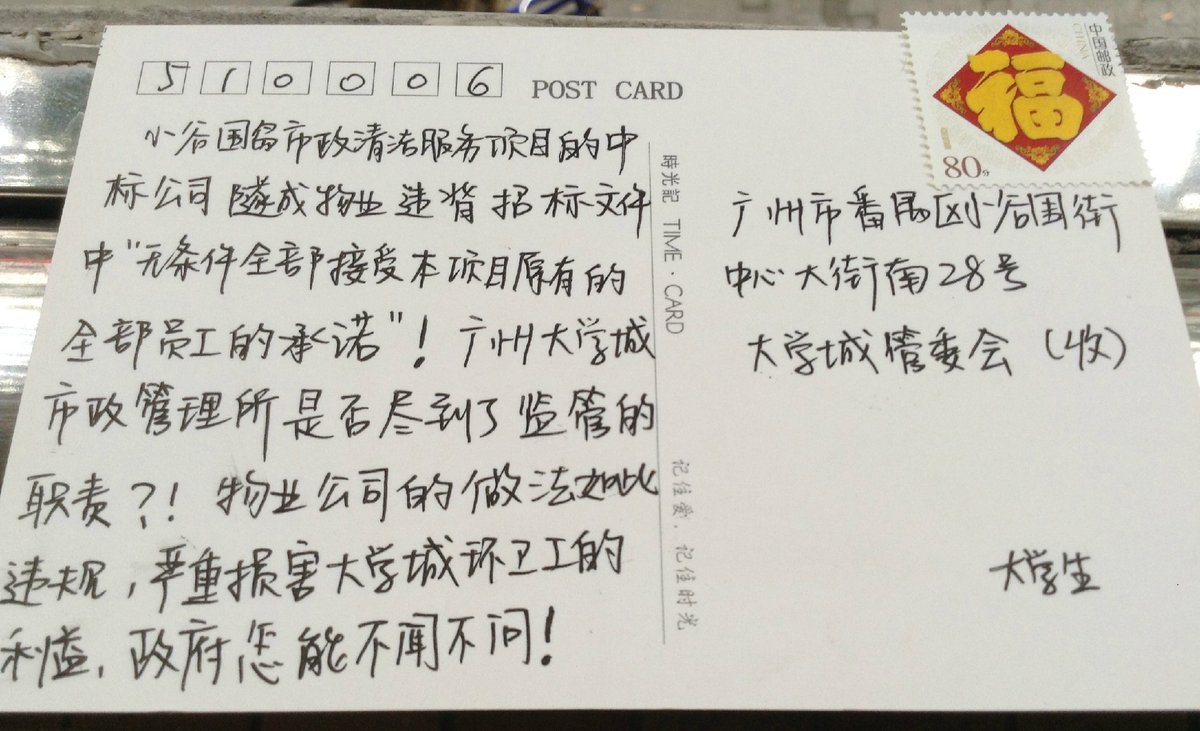 510006
POST CARD
小谷围岛市政清洁服务项目的中
标公司隧成物业违背招标文件
中“无条件全部接受本项目原有的
全部员工的承诺”！广州大学城
市政管理所是否尽到了监管的
职责？！物业公司的做法如此
违规，严重损害大学城环卫工的
利益，政府怎能不闻不问！
時光記 TIME·CARD
记住爱，记住时光
中国邮政
CHINA
福
80分
广州市番禺区小谷围街
中心大街南28号
大学城管委会（收）
大学生